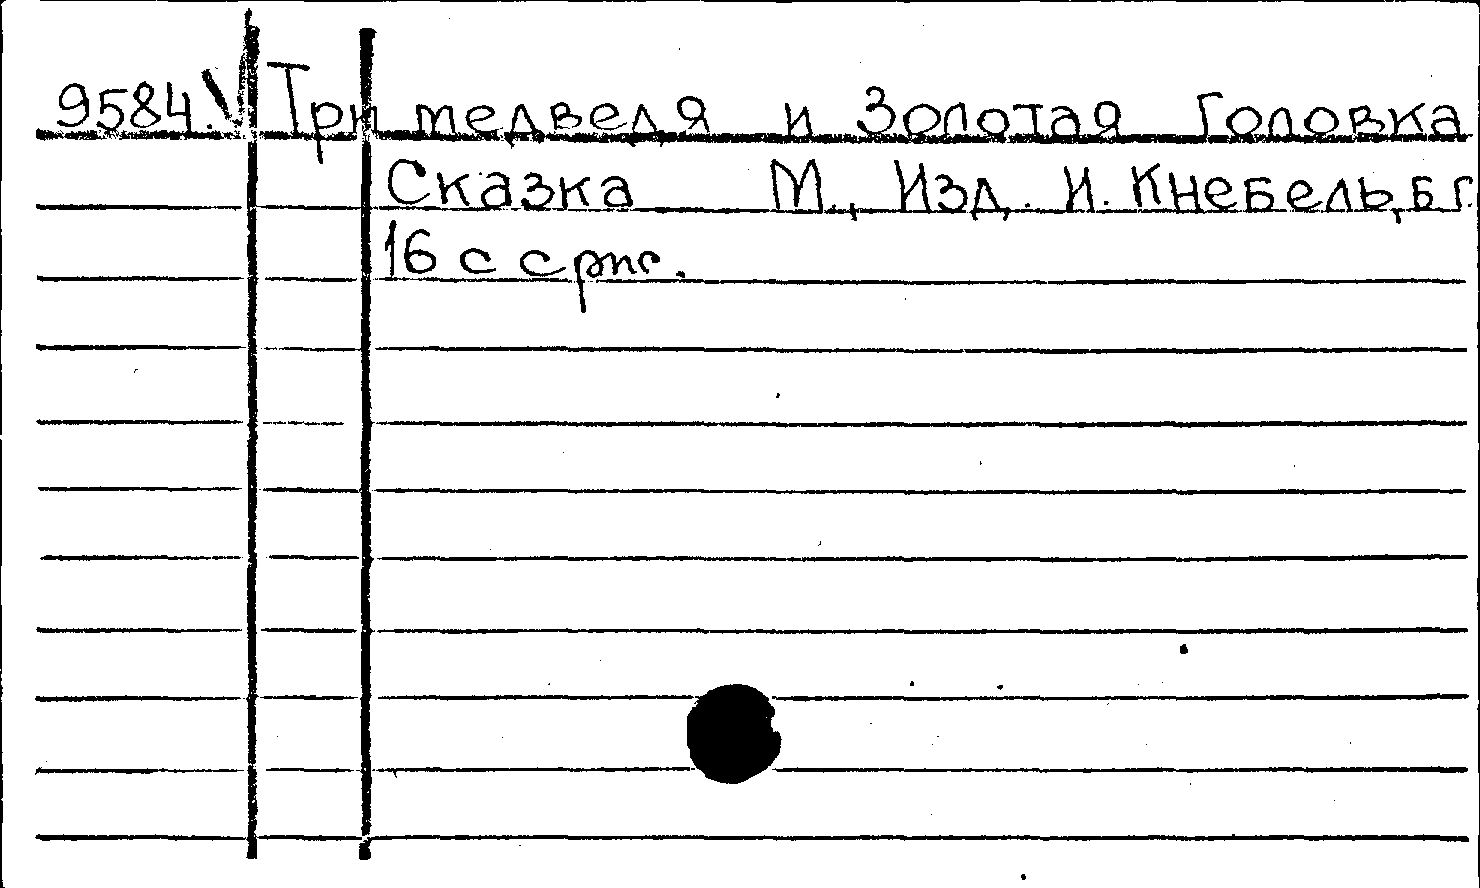 9584.V Три медведя и Золотая Головка
Сказка М., Изд. И. Кнебель, б г.
16 с с рис.